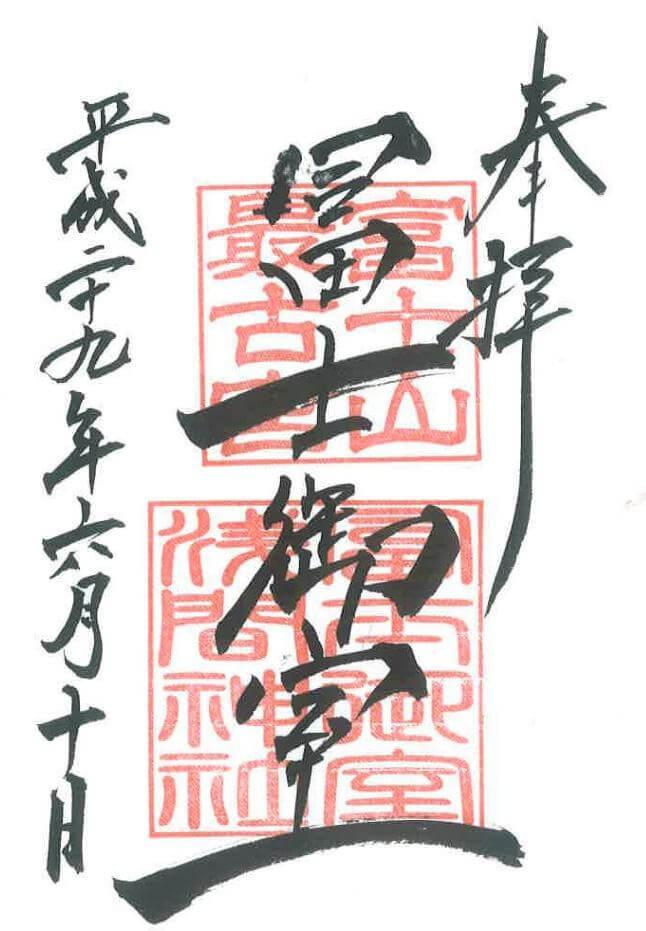 奉拝
富士山
最古宮
冨士御室
富士御室
浅間神社
平成二十九年六月十日